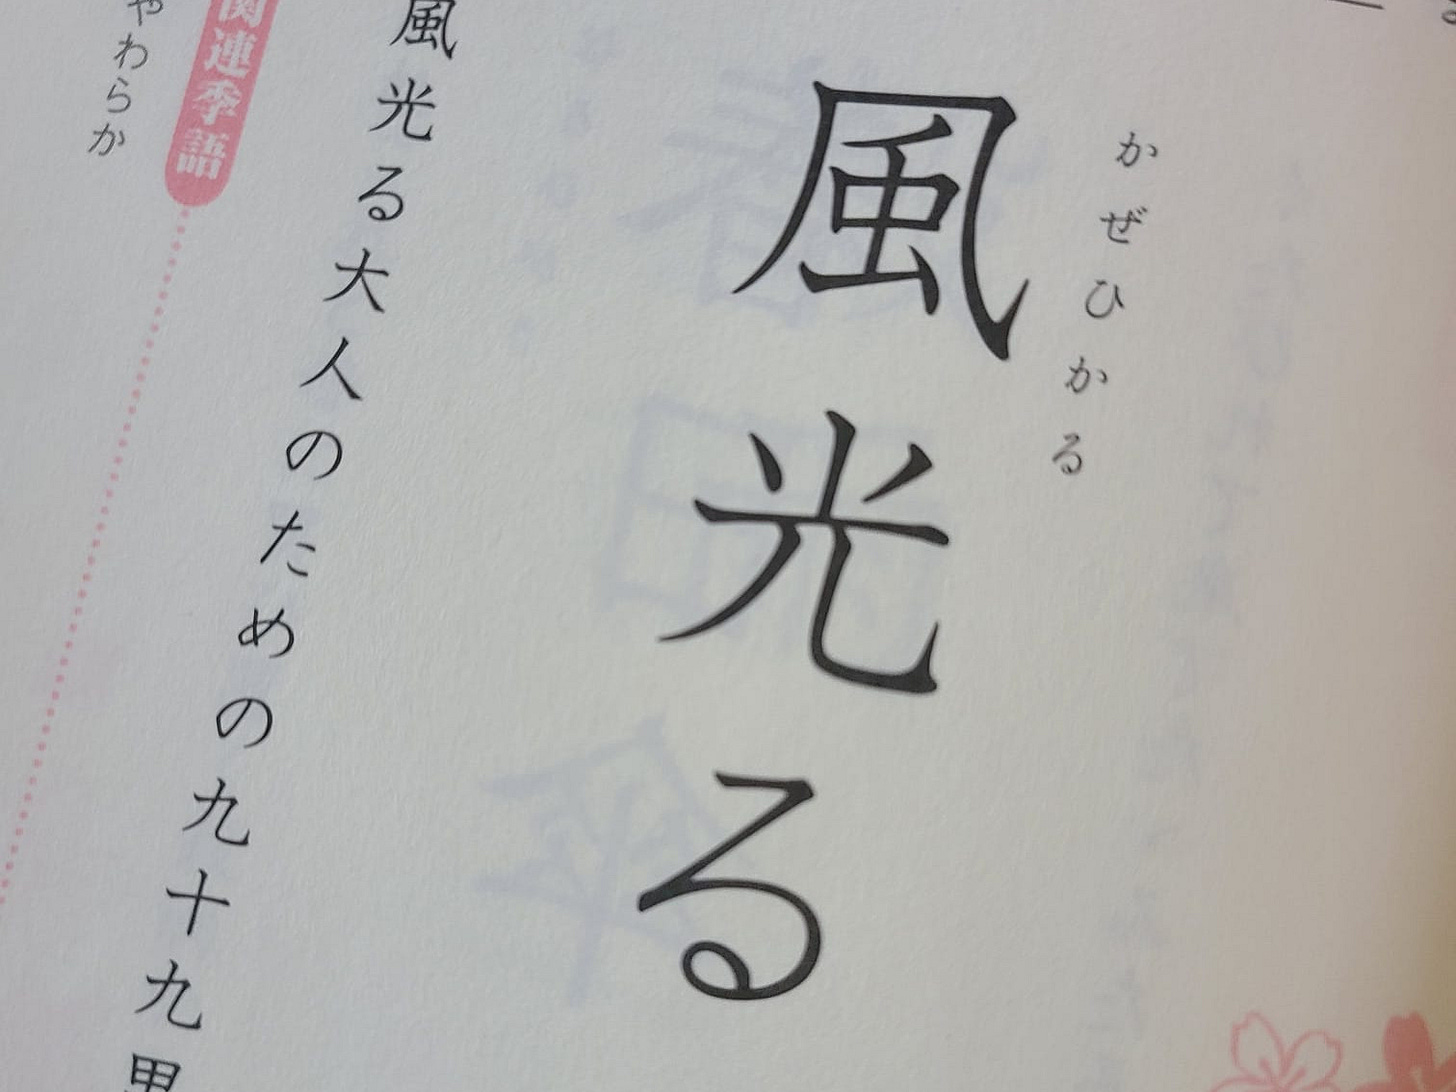 かぜひかる
風光る
風光る大人のための九十九里
関連季語
やわらか